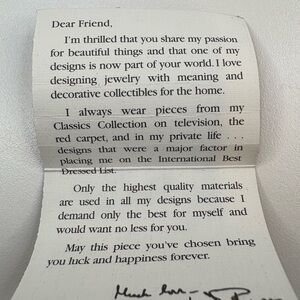 Dear Friend,
I'm thrilled that you share my passion
for beautiful things and that one of my
designs is now part of your world. I love
designing jewelry with meaning and
decorative collectibles for the home.
I always wear pieces from my
Classics Collection on television, the
red carpet, and in my private life . . .
designs that were a major factor in
placing me on the International Best
Dressed List.
Only the highest quality materials
are used in all my designs because I
demand only the best for myself and
would want no less for you.
May this piece you've chosen bring
you luck and happiness forever.
Much love-